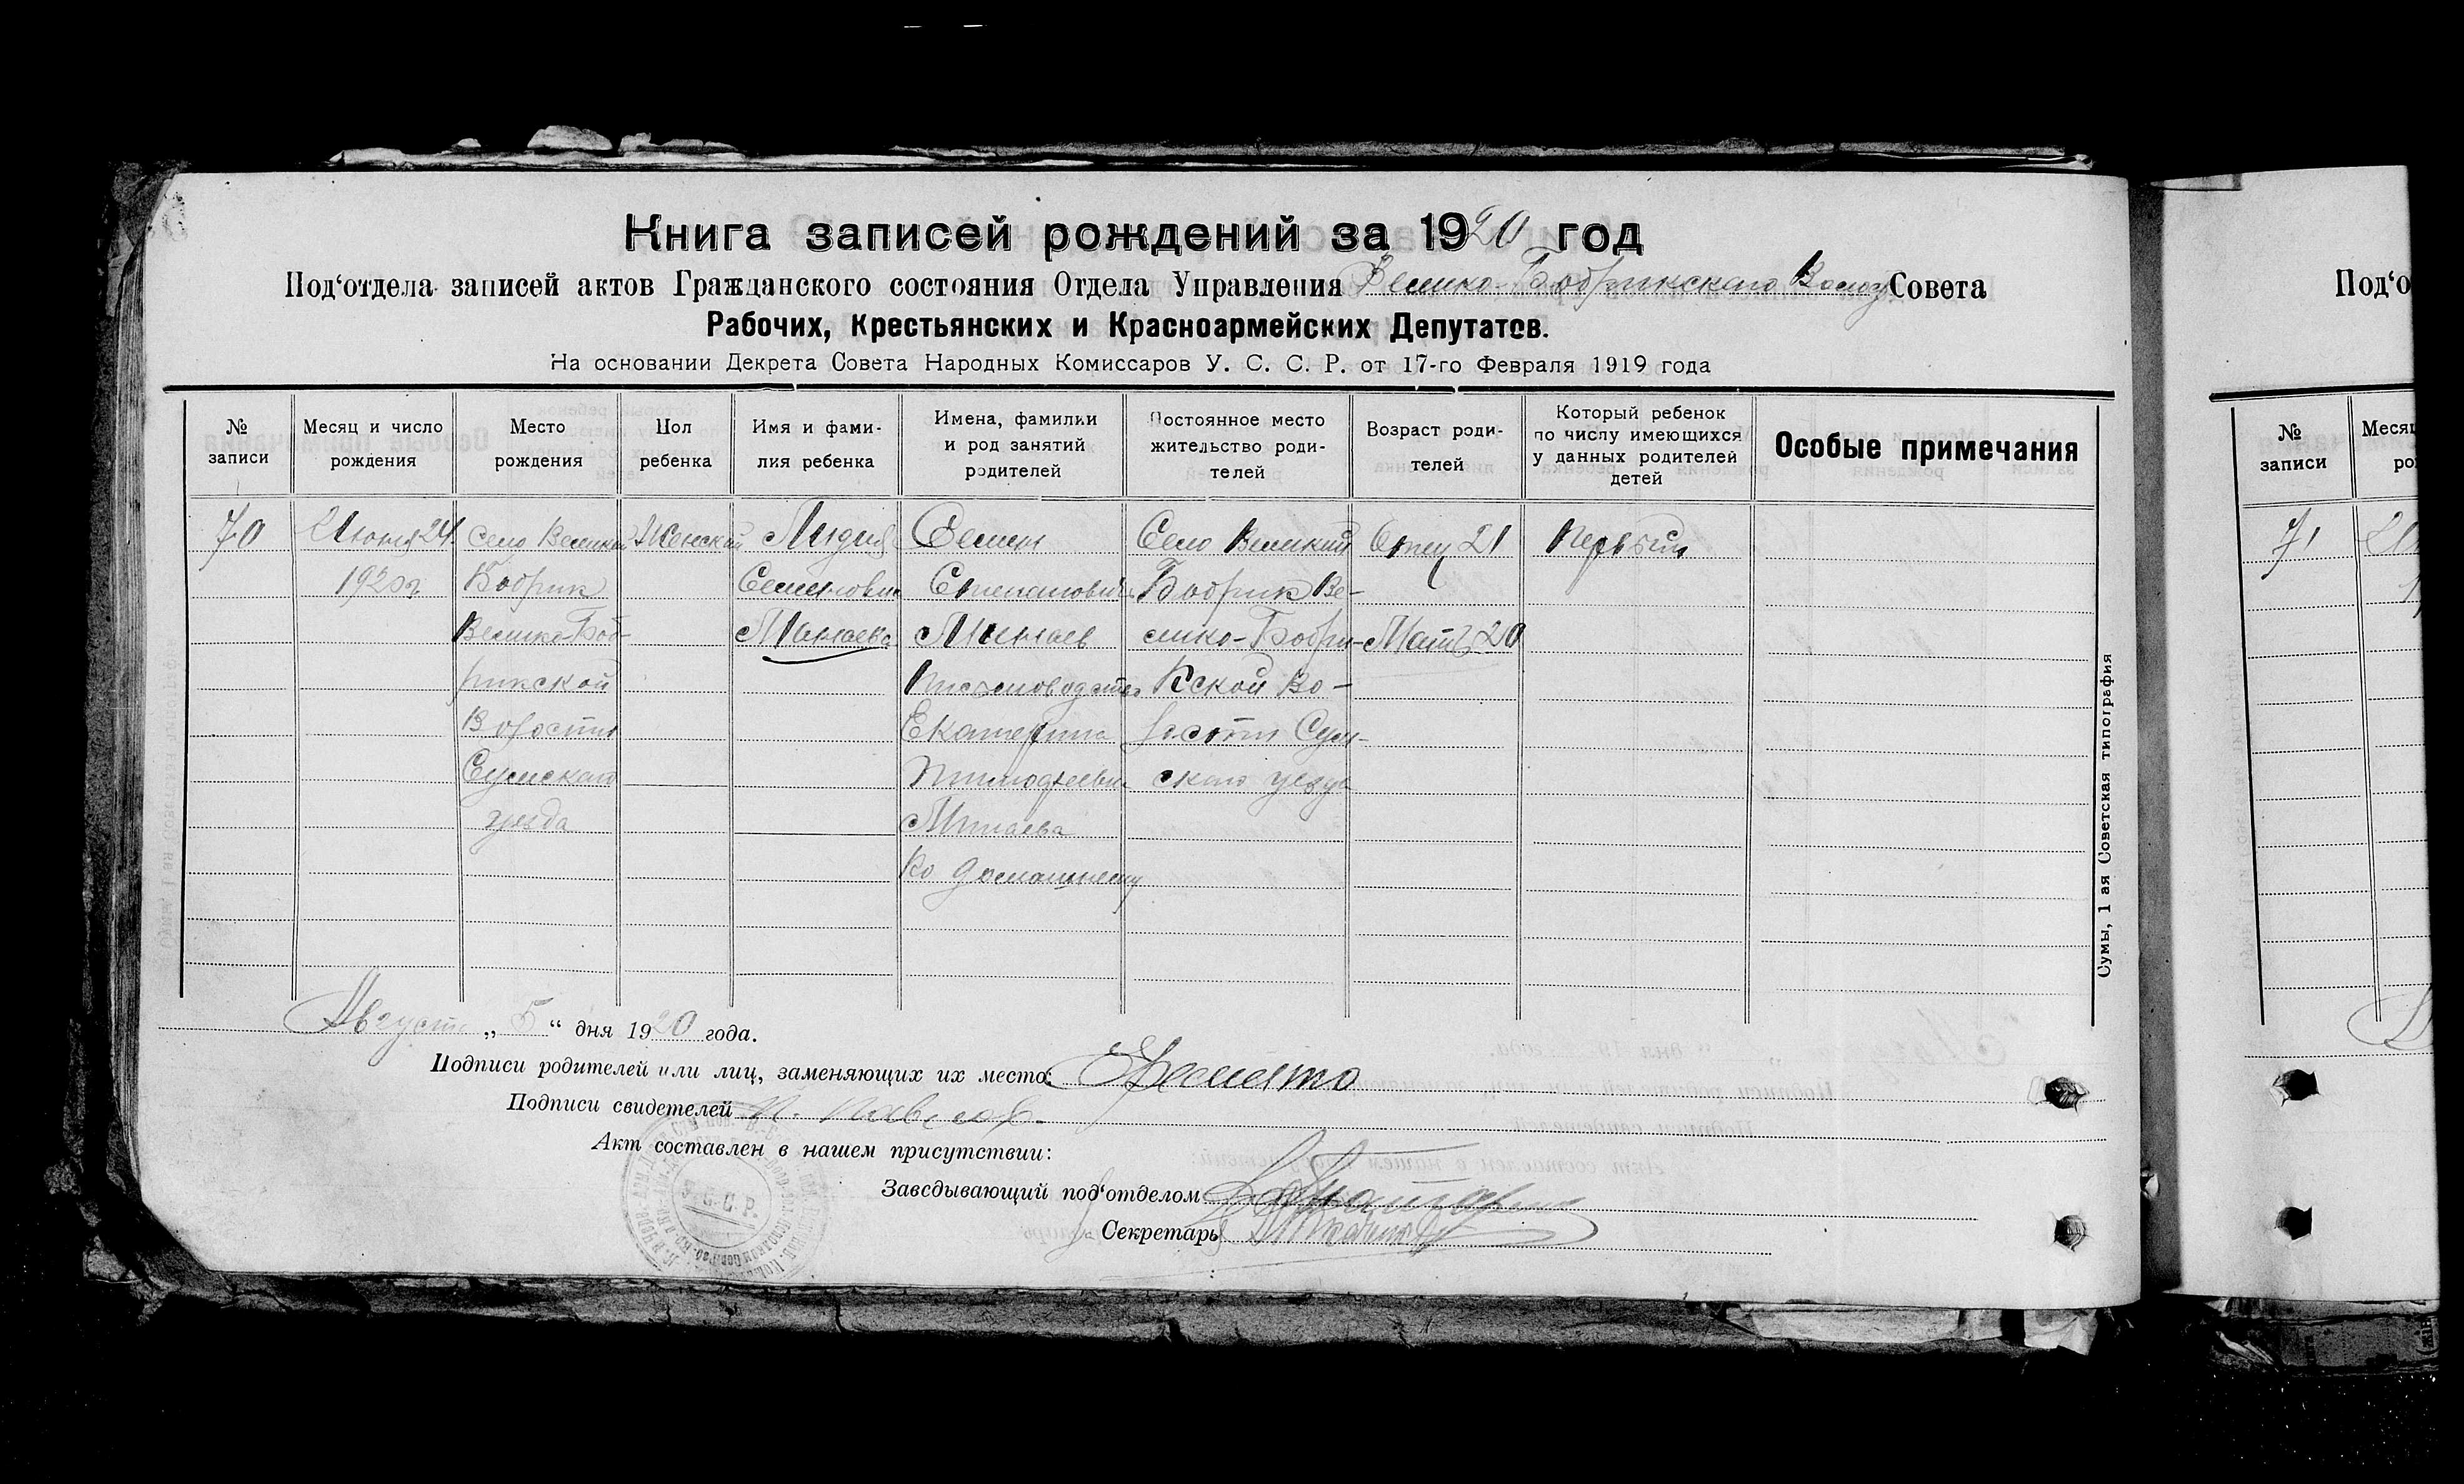 Книга записей рождений за 1920 год
Под‘отдела записей актов Гражданского состояния Отдела Управления Велико-Бобрикского Волос Совета
Рабочих, Крестьянских и Красноармейских Депутатов.
На основании Декрета Совета Народных Комиссаров У. С. С. Р. от 17-го Февраля 1919 года
№ записи
Месяц и число рождения
Место рождения
Пол ребенка
Имя и фами-
лия ребенка
Имена, фамилии
и род занятий
родителей
Постоянное место
жительство роди-
телей
Возраст роди-
телей
Который ребенок
по числу имеющихся
у данных родителей
детей
Особые примечания
70
Июня 24
1920 г
село Великий
Бобрик
Велико-Боб-
рикской
Волости
Сумского
уезда
Женской
Лидия
Семеновна
Минаева
Семен
Степанович
Минаев
Письмоводитель
Екатерина
Тимофеевна
Минаева
по домашнему
Село Великий
Бобрик Ве-
лико-Бобри-
кской Во-
лости Сум-
ского уезда
Отец 21
Мать 20
Первый
Августа „ 5 “ дня 1920 года.
Подписи родителей или лиц, заменяющих их место:
Подписи свидетелей
Акт составлен в нашем присутствии:
Заведывающий под‘отделом
Секретарь
Сумы, 1 ая Советская типография
Под‘о
№ записи
Месяц
ро
71